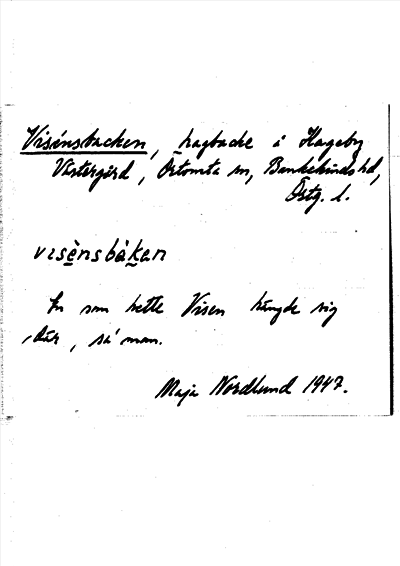 Visénsbacken, hagbacke i Hageby
Västergård, Örtomta sn, Bankekinds hd,
Östg. l.
visènsbákan
En som hette Visen hängde sig
där, sa' man.
Maja Nordlund 1947.